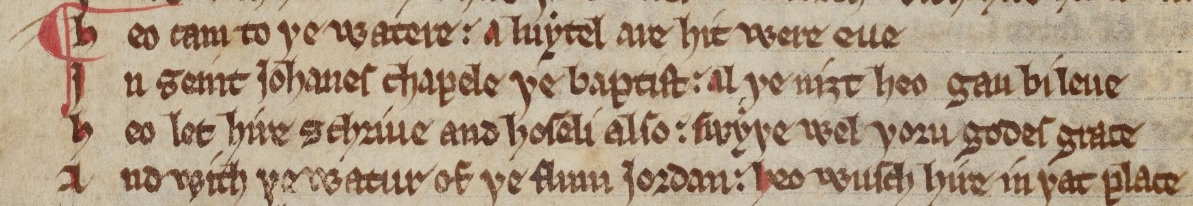 Heo cam to þe watere : a luytel are hit were eue
In seint Johanes chapele þe baptist : al þe niȝt heo gan bileue
heo let hire schriue and hoseli also : swyþe wel þoru godes grace
And with þe watur of þe flum Jordan : heo wusch hire in þat place